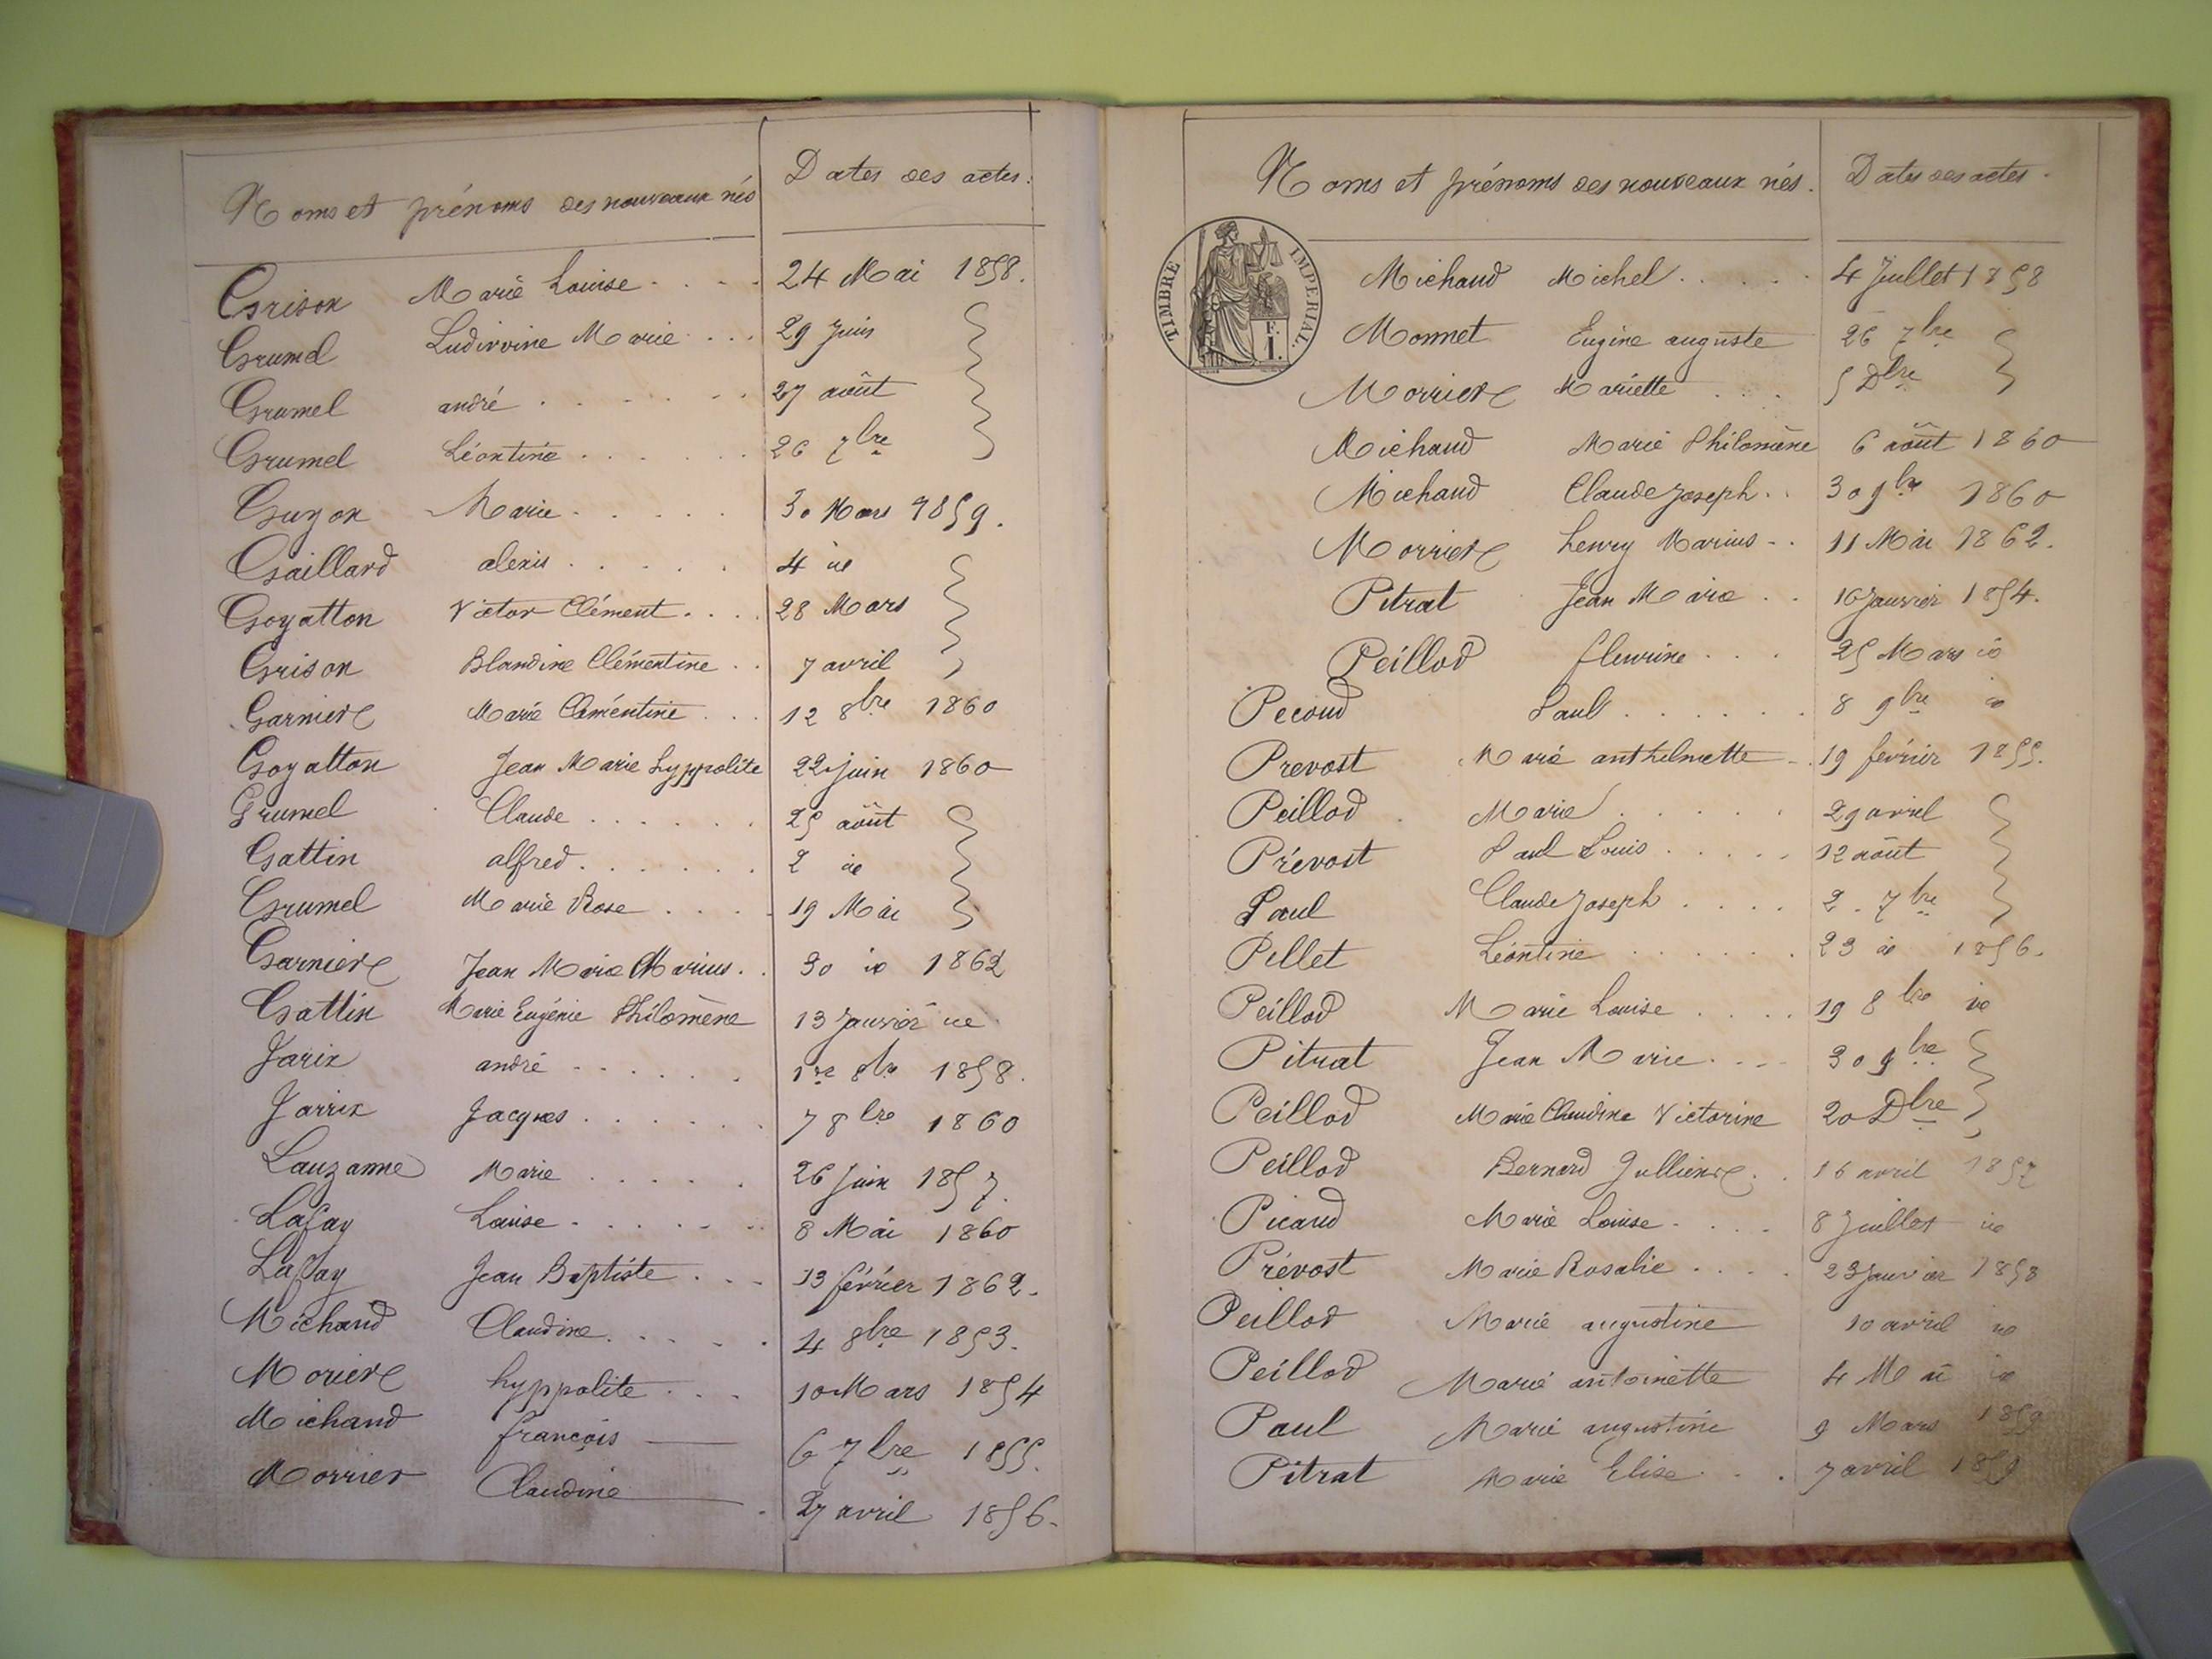 Noms et prénoms des nouveaux nés Dates des actes.
Grison Marie Louise 24 Mai 1858.
Grumel Ludivvine Marie 29 Juin
Grumel andré 27 août
Grumel Léontine 26 7bre
Guyon Marie 30 Mars 1859.
Gaillard alexis 4 id
Goyatton Victor Clément 28 Mars
Grison Blandine Clémentine 7 avril
Garniere Marie Clémentine 12 8bre 1860
Goyatton Jean Marie hyppolite 22 juin 1860
Grumel Claude 25 août
Gattin alfred 2 id
Grumel Marie Rose 19 Mai
Garniere Jean Marie Marius 30 id 1862
Gattin Marie Eugénie Philomène 13 Janvier id
Jarix andré 1re 8bre 1858.
Jarrix Jacques 7 8bre 1860
Lauzanne Marie 26 Juin 1857.
Lafay Louise 8 Mai 1860
Laffay Jean Baptiste 13 février 1862.
Michaud Claudine 4 8bre 1853.
Moriere hyppolite 10 Mars 1854
Michaud françois 6 7bre 1855.
Morrier Claudine 27 avril 1856.
Noms et prénoms des nouveaux nés. Dates des actes.
TIMBRE IMPERIAL.
F.
I.
Michaud Michel 4 Juillet 1858
Monnet Eugène auguste 26 7bre
Morriere Mariette 5 Dbre
Michaud Marie Philomène 6 août 1860
Michaud Claude Joseph 30 9bre 1860
Morriere henry Marius 11 Mai 1862.
Pitrat Jean Marie 16 Janvier 1854.
Peillod fleurine 25 Mars id
Pecoud Paul 8 9bre id
Prevost Marie anthelmette 19 février 1855.
Peillod Marie 29 avril
Prévost Paul Louis 12 août
Paul Claude Joseph 2. 7bre
Pillet Léontine 23 id 1856.
Peillod Marie Louise 19 8bre id
Pitrat Jean Marie 30 9bre
Peillod Marie Claudine Victorine 20 Dbre
Peillod Bernard Jullienne 16 avril 1857
Picaud Marie Louise 8 Juillet id
Prévost Marie Rosalie 23 Janvier 1858
Peillod Marie augustine 10 avril id
Peillod Marie antoinette 4 Mai id
Paul Marie augustine 9 Mars 1859
Pitrat Marie Elise 7 avril 1859